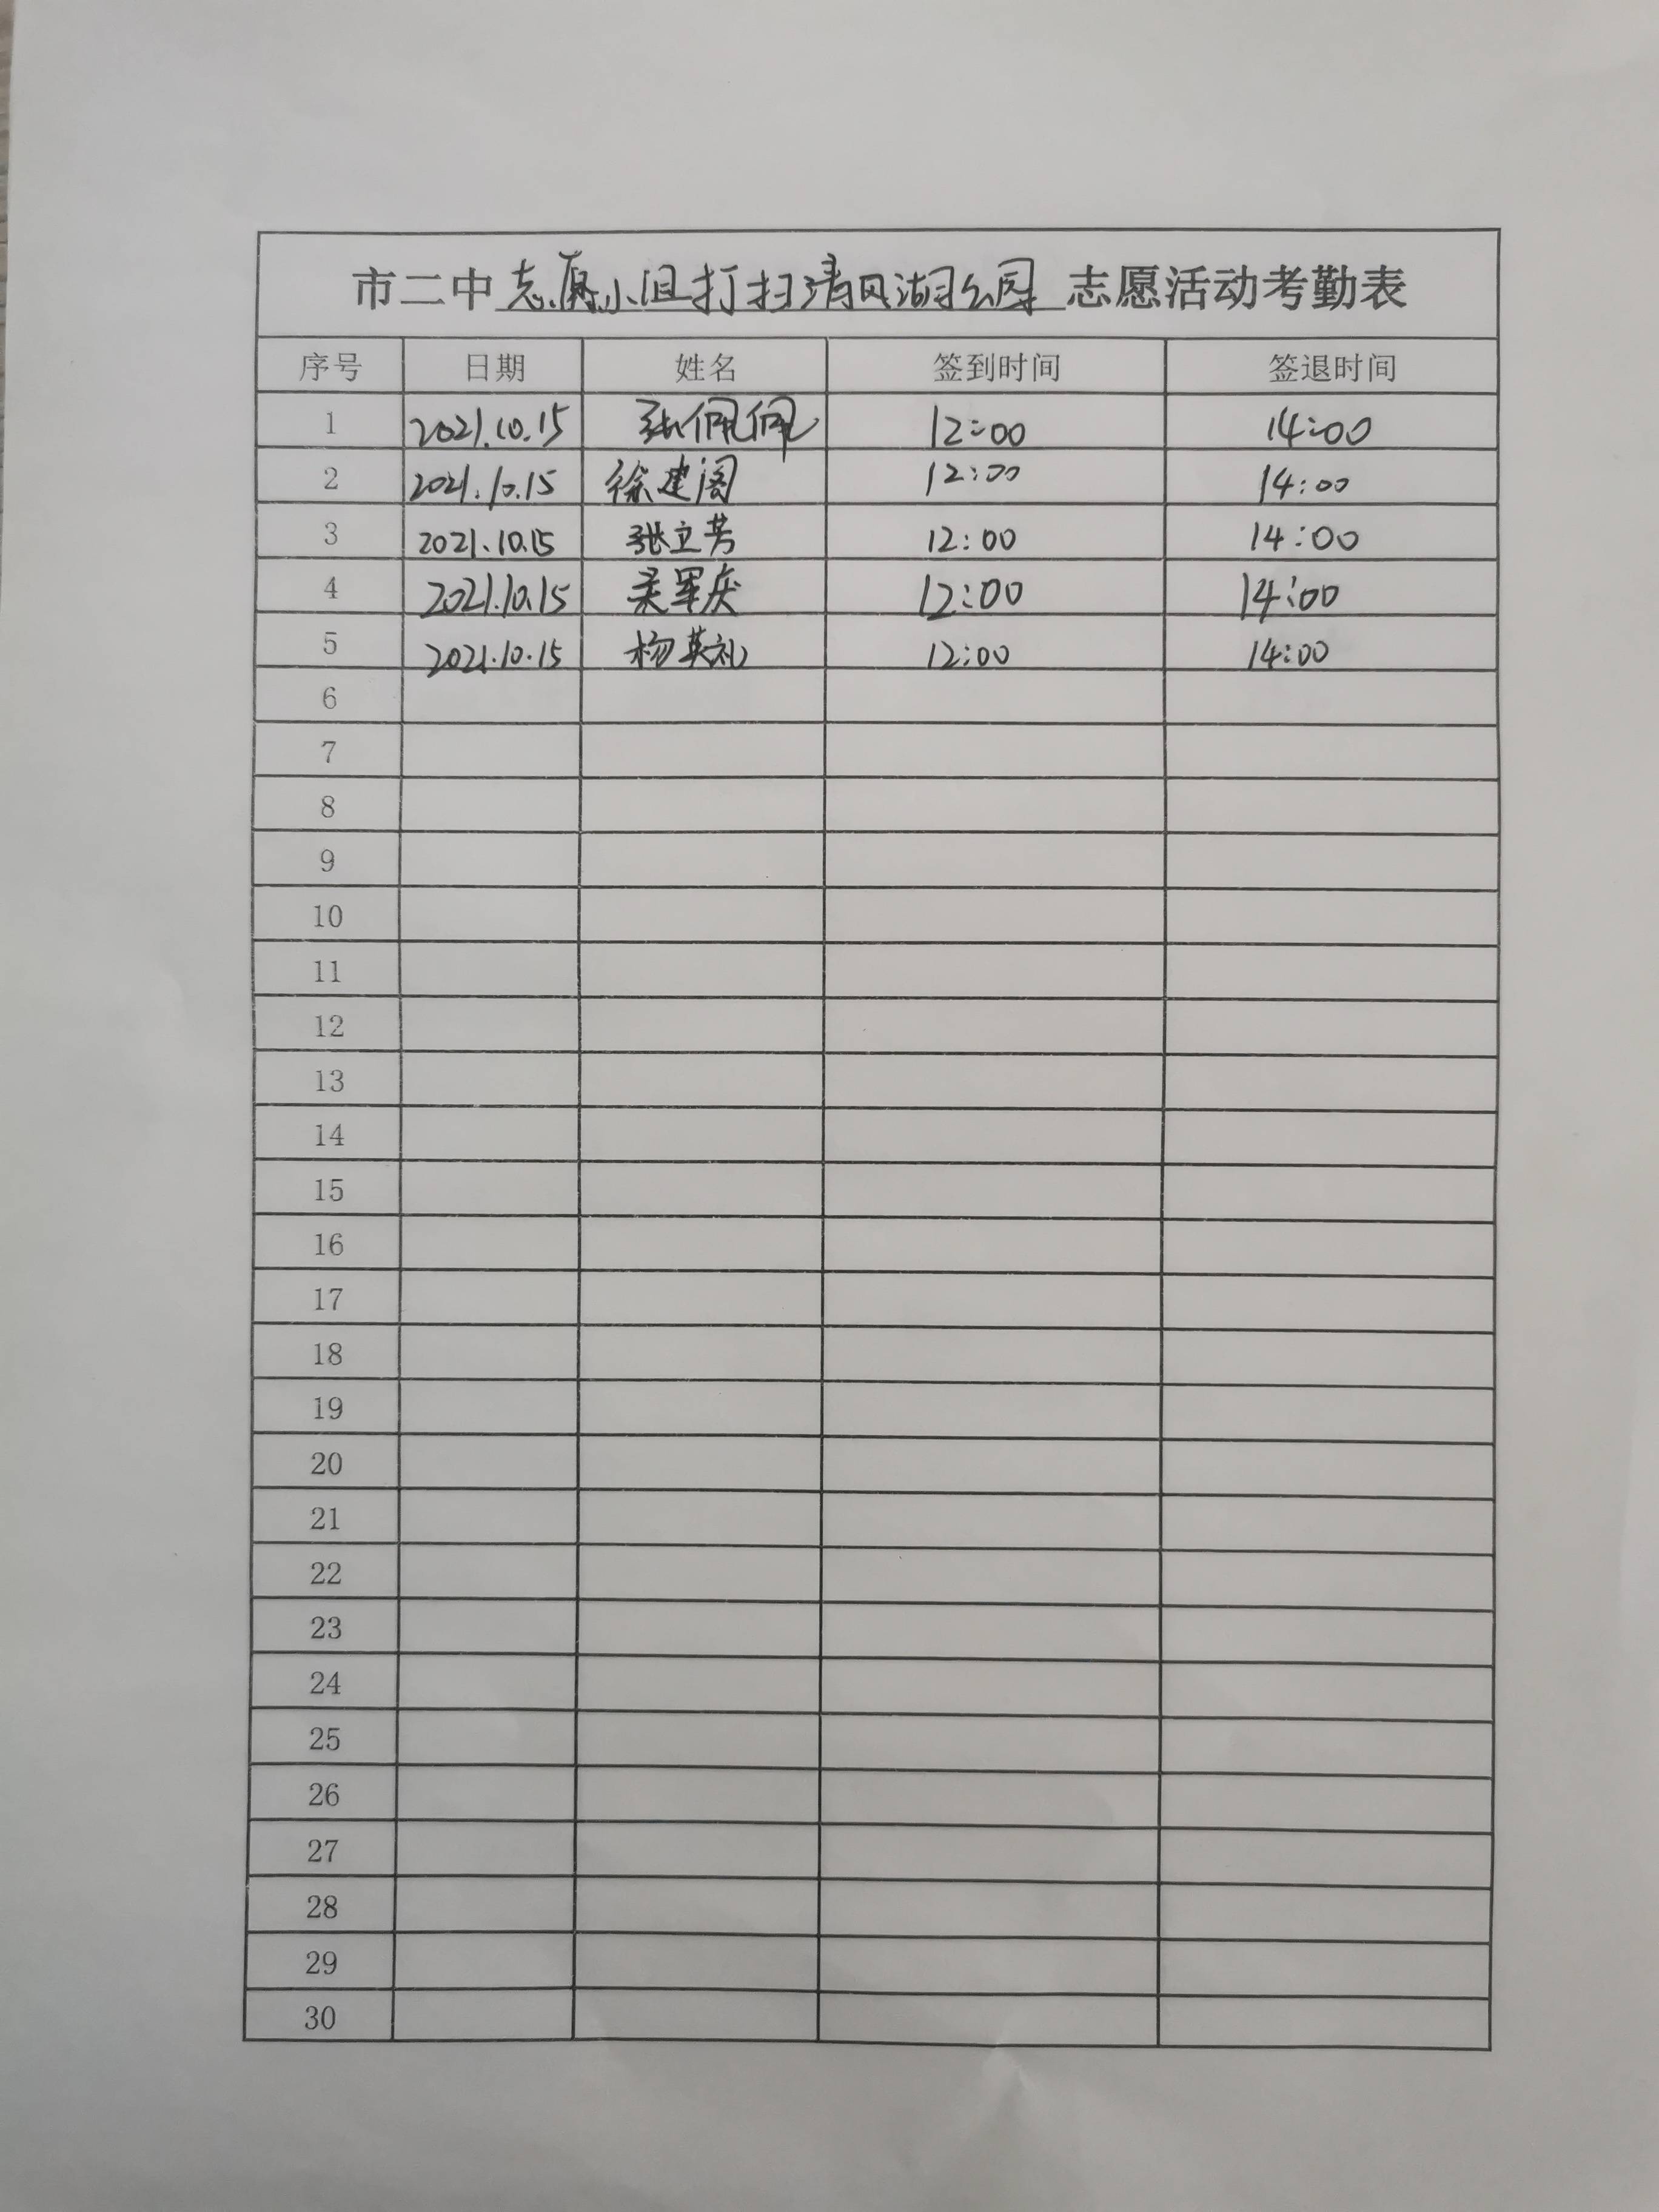 市二中志愿小组打扫清风湖公园志愿活动考勤表
序号 日期 姓名 签到时间 签退时间
1 2021.10.15 张佩佩 12:00 14:00
2 2021.10.15 徐建阁 12:00 14:00
3 2021.10.15 张立芳 12:00 14:00
4 2021.10.15 吴军庆 12:00 14:00
5 2021.10.15 杨英礼 12:00 14:00
6
7
8
9
10
11
12
13
14
15
16
17
18
19
20
21
22
23
24
25
26
27
28
29
30